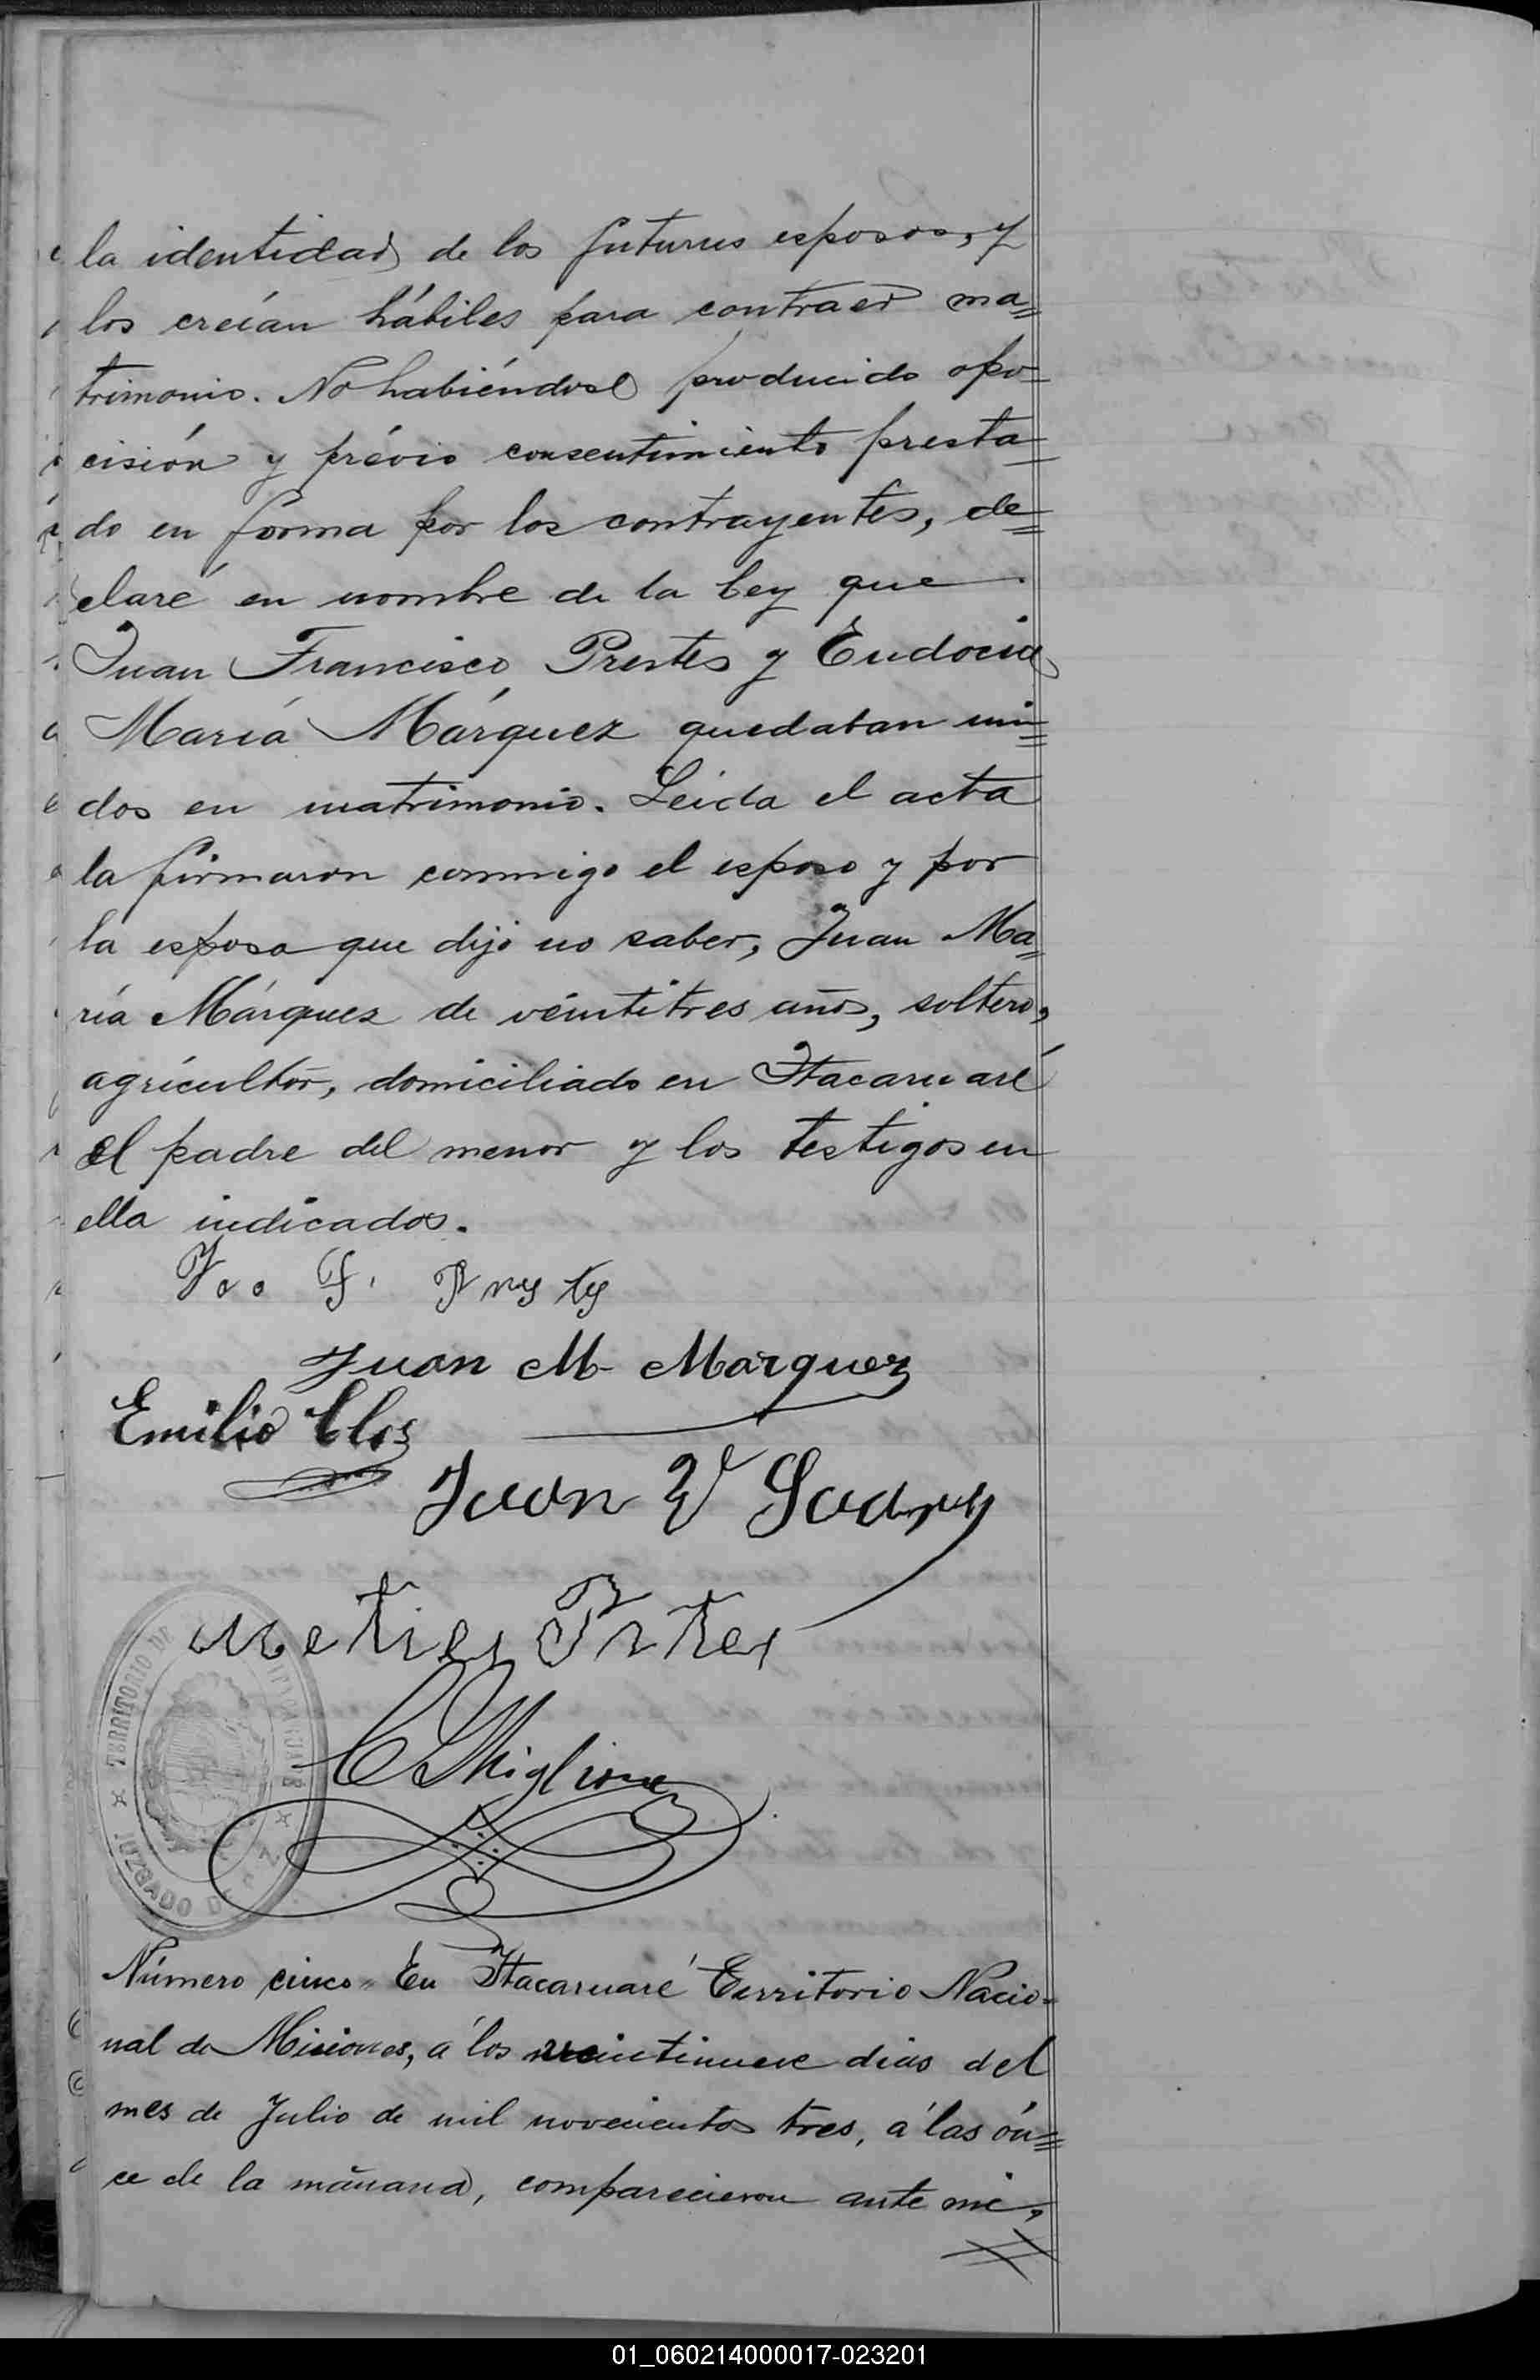 la identidad de los futuros esposos, y
los creían hábiles para contraer ma=
trimonio. No habiéndose producido opo=
cisión y prévio consentimiento presta=
do en forma por los contrayentes, de=
claré en nombre de la ley que
Juan Francisco Prestes y Eudocia
María Márquez quedaban uni=
dos en matrimonio. Leida el acta
la firmaron conmigo el esposo y por
la esposa que dijo no saber, Juan Ma=
ría Márquez de veintitres años, soltero,
agricultor, domiciliado en Itacaruaré
el padre del menor y los testigos en
ella indicados.
Joo F. Prestes
Juan M Marquez
Emilio Clos
Juan
Prtes
C Migliore
TERRITORIO DE
JUZGADO DE
Número cinco= En Itacaruaré Territorio Nacio=
nal de Misiones, á los veintinueve dias del
mes de Julio de mil novecientos tres, á las ón=
ce de la mañana, comparecieron ante mi,
01_060214000017-023201